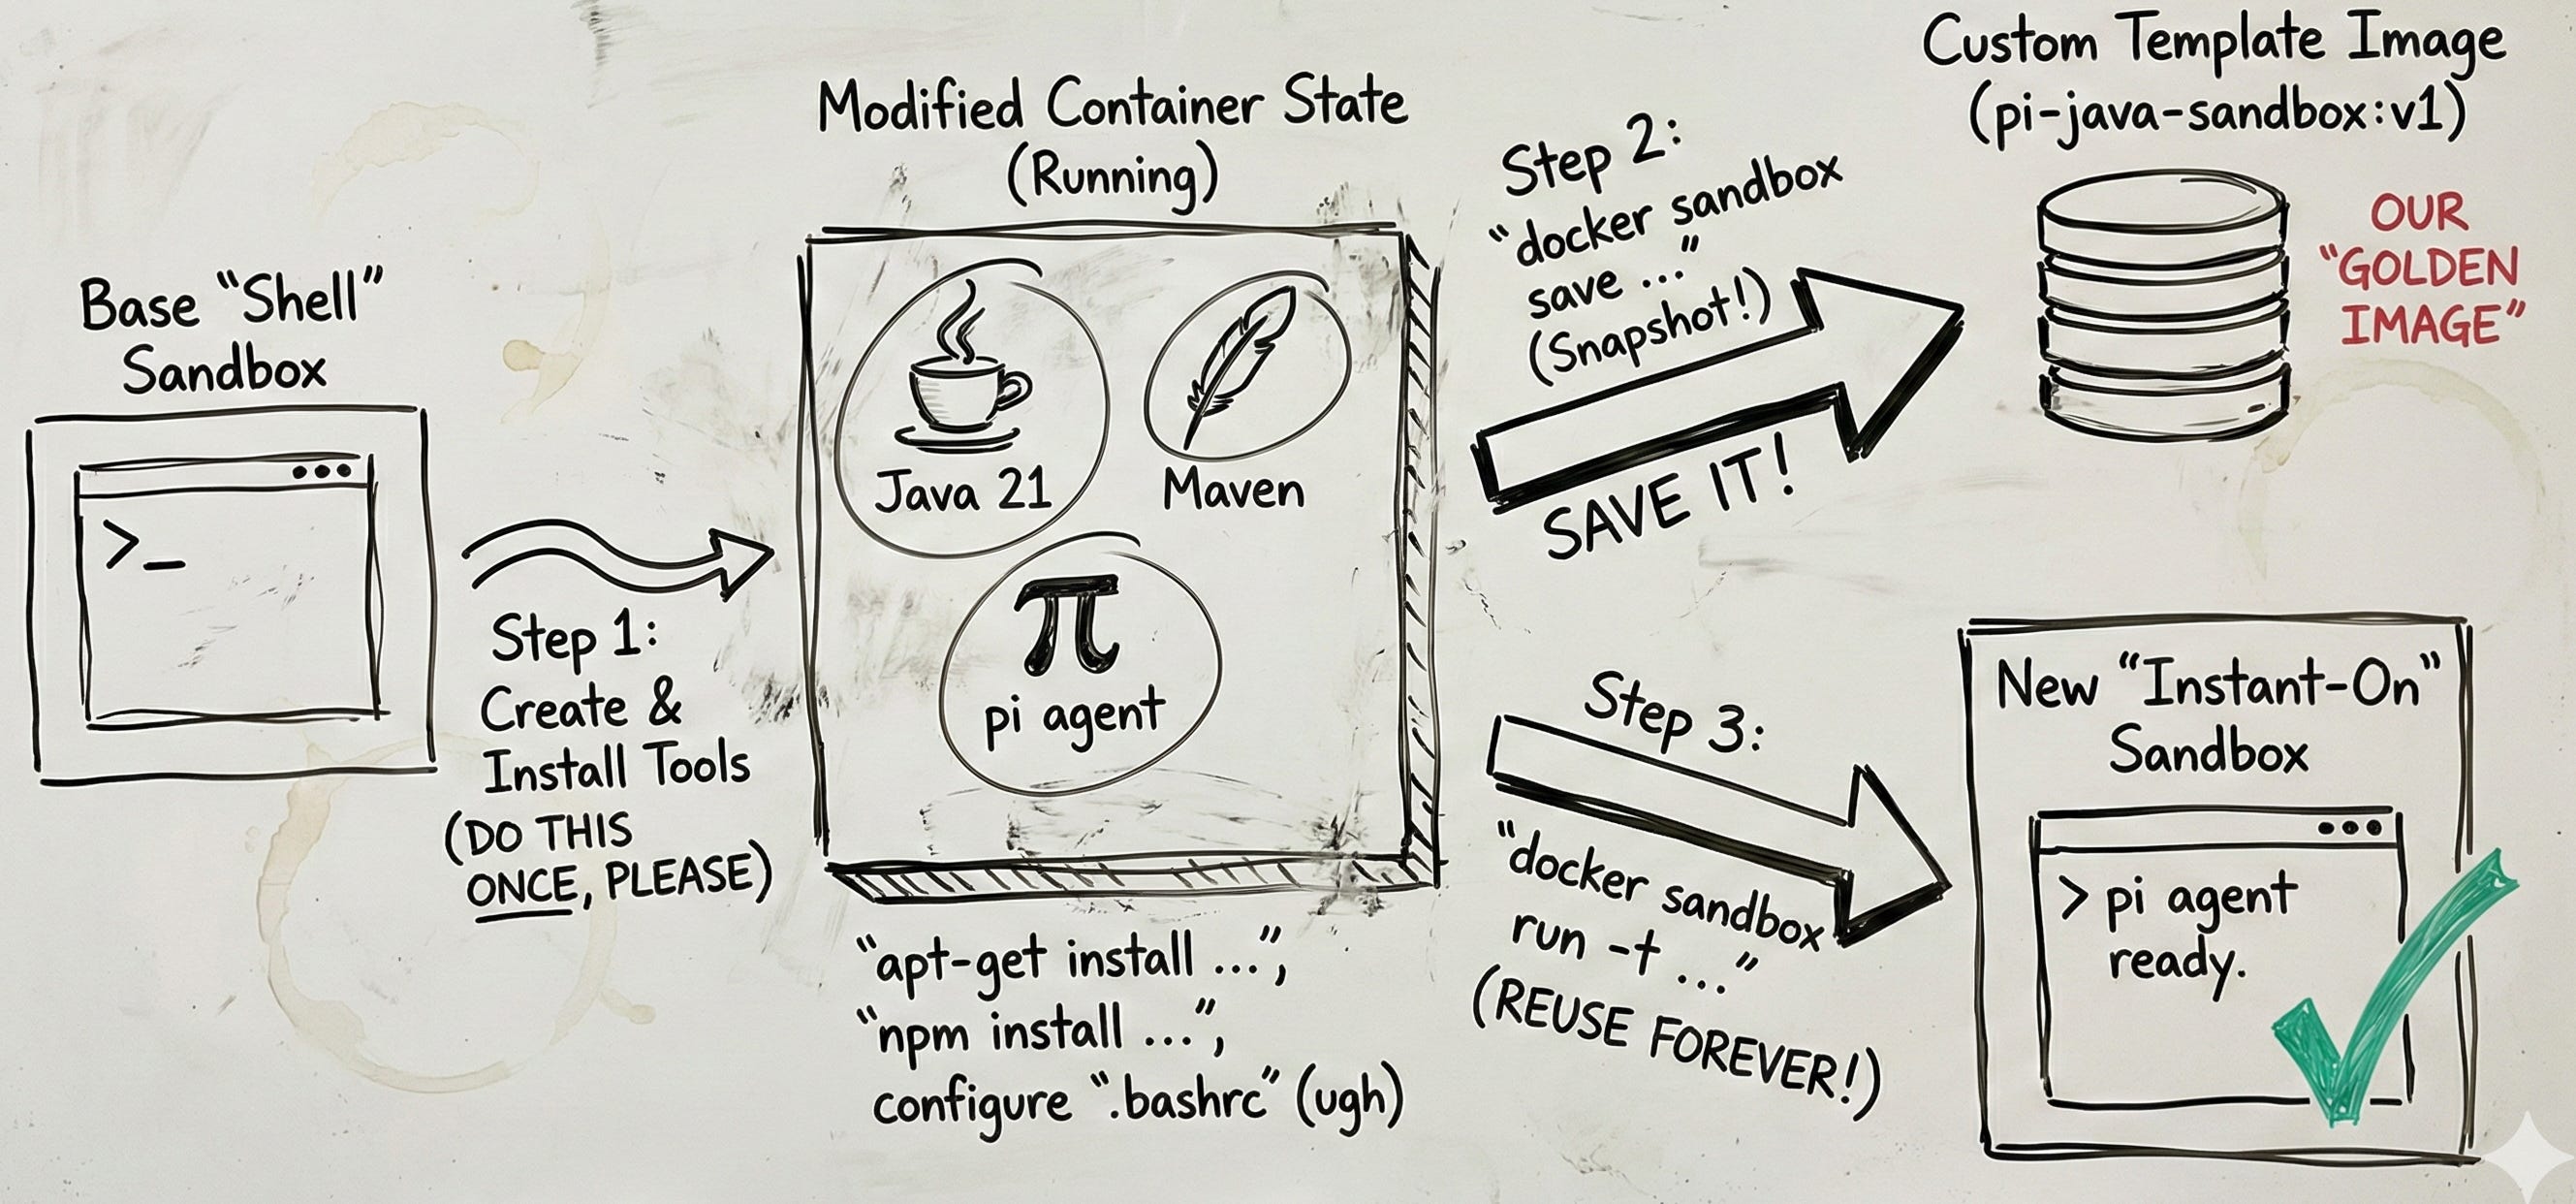 Base “Shell”
Sandbox
>_
Step 1:
Create &
Install Tools
(DO THIS
ONCE, PLEASE)
Modified Container State
(Running)
Java 21
Maven
π
pi agent
“apt-get install ...”,
“npm install ...”,
configure “.bashrc” (ugh)
Step 2:
“docker sandbox
save ...”
(Snapshot!)
SAVE IT!
Custom Template Image
(pi-java-sandbox:v1)
OUR
“GOLDEN
IMAGE”
Step 3:
“docker sandbox
run -t ...”
(REUSE FOREVER!)
New “Instant-On”
Sandbox
> pi agent
ready.